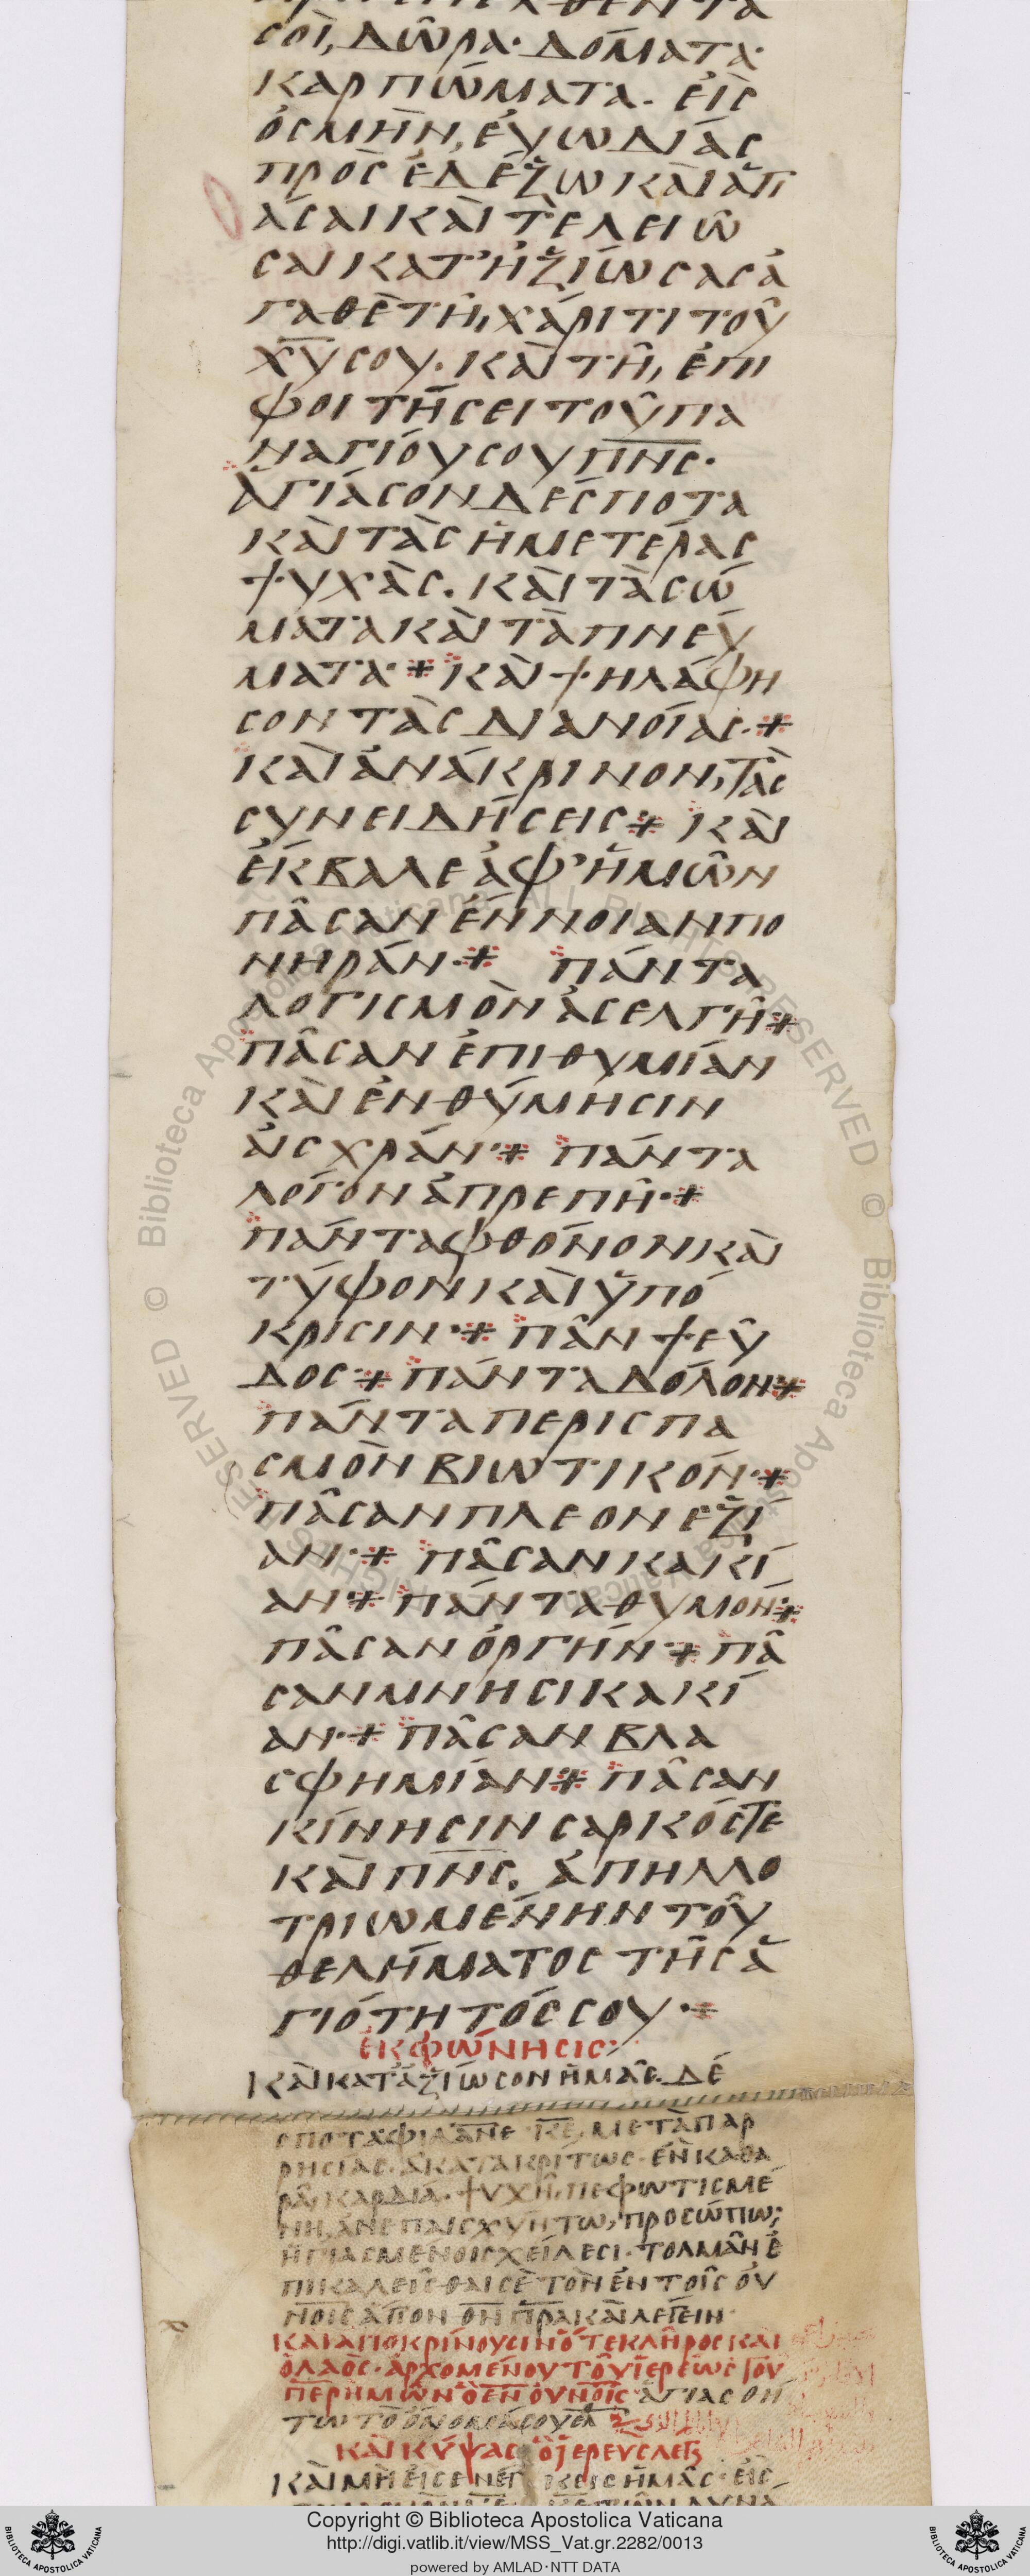 σοὶ, δῶρα· δόματα·
καρπώματα. εἰς
ὀσμὴν, εὐωδίας
προσεδέξω καὶ ἁγι
άσαι καὶ τελειῶ
σαι κατηξίωσας ἀ
γαθὲ τῆ, χάριτι τοῦ
χυ σου. καὶ τῆ, ἐπι
φοιτήσει τοῦ πα
ναγίου σου πνς.
ἁγίασον δέσποτα
καὶ τὰς ἡμετέρας
ψυχὰς. καὶ τὰ σώ
ματα καὶ τὰ πνεύ
ματα· + καὶ ψηλάφη
σον τὰς διανοίας. +
καὶ ἀνάκρινον, τὰς
συνειδήσεις + καὶ
ἔκβαλε ἀφ' ἡμῶν
πᾶσαν ἔννοιαν πο
νηράν· + πάντα
λογισμὸν ἀσελγῆ +
πᾶσαν ἐπιθυμίαν
καὶ ἐνθύμησιν
αἰσχράν· + πάντα
λόγον ἀπρεπῆ· +
πάντα φθόνον καὶ
τύφον καὶ ὑπό
κρισιν· + πᾶν ψεῦ
δος· + πάντα δόλον +
πάντα περισπα
σμὸν βιωτικόν· +
πᾶσαν πλεονεξί
αν· + πᾶσαν κακί
αν + πάντα θυμόν +
πᾶσαν ὀργήν· + πᾶ
σαν μνησικακί
αν· + πᾶσαν βλα
σφημίαν + πᾶσαν
κίνησιν σαρκός τε
καὶ πνς. ἀπηλλο
τριωμένην τοῦ
θελήματος τῆς ἁ
γιότητός σου· +
ἐκφώνησις:
καὶ καταξίωσον ἡμᾶς. δέ
σποτα φιλανε κε, μετὰ παρ
ρησίας. ἀκατακρίτως. ἐν καθα
ρᾶ, καρδία. ψυχῆ, πεφωτισμέ
νη, ἀνεπαισχύντω, προσώπω,
ἡγιασμένοις χείλεσι. τολμᾶν ἐ
πικαλεῖσθαι σὲ τὸν ἐν τοῖς οὐ
νοῖς ἅγιον θν πρα καὶ λέγειν·
καὶ ἀποκρίνουσιν ὅ τε κλῆρος καὶ
ὁ λαὸς· ἀρχομένου τοῦ ἱερέως τοῦ
περ ἡμῶν ὁ ἐν οὐνοῖς ἁγιασθή
τω τὸ ὄνομά σου
καὶ κύψας ὁ ἱερεὺς λέγ
καὶ μὴ εἰσενέγκεις ἡμᾶς· εἰς
Copyright © Biblioteca Apostolica Vaticana
http://digi.vatlib.it/view/MSS_Vat.gr.2282/0013
powered by AMLAD・NTT DATA